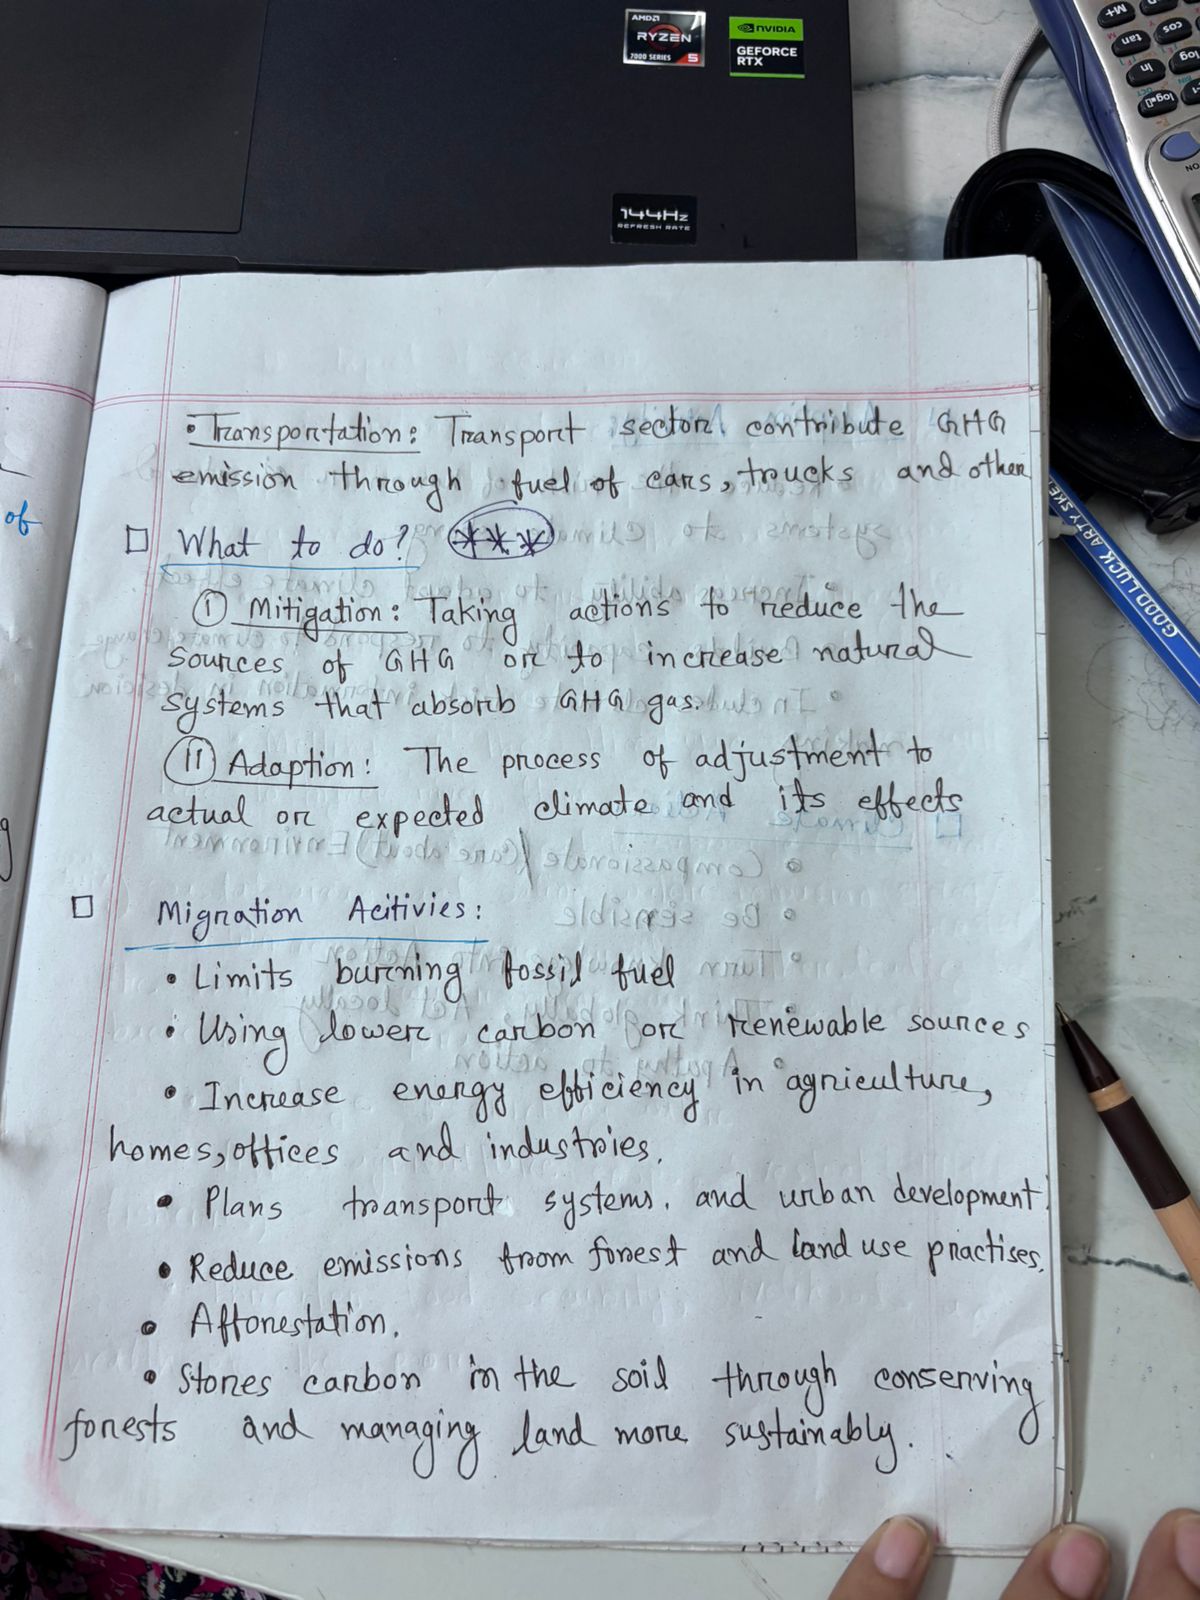 AMD
RYZEN
7000 SERIES 5
NVIDIA
GEFORCE
RTX
144Hz
REFRESH RATE
M+
cos
tan
log
ln
ON
GOOD LUCK ARTY SKE
of
• Transportation: Transport sector contribute GHG
emission through fuel of cars, trucks and other
□ What to do? ***
(I) Mitigation: Taking actions to reduce the
sources of GHG or to increase natural
systems that absorb GHG gas.
(II) Adaption: The process of adjustment to
actual or expected climate and its effects
□ Migration Acitivies:
• Limits burning fossil fuel
• Using lower carbon or renewable sources
• Increase energy efficiency in agriculture,
homes, offices and industries.
• Plans transport systems. and urban development.
• Reduce emissions from forest and land use practises.
• Afforestation.
• Stores carbon in the soil through conserving
forests and managing land more sustainably.